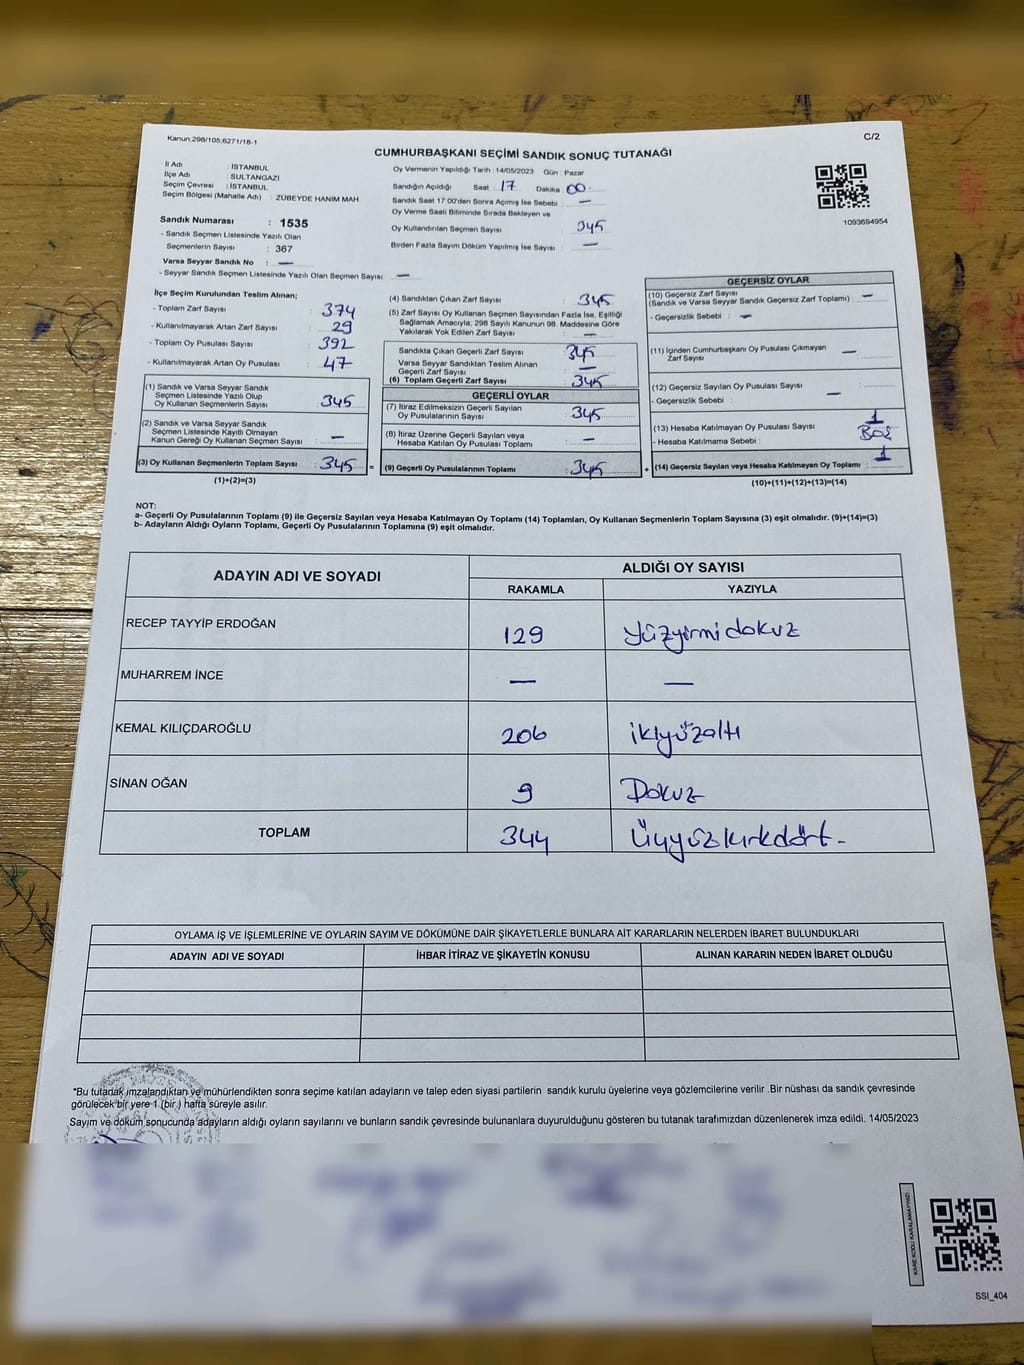 Kanun.298/105,6271/16-1
C/2
CUMHURBAŞKANI SEÇİMİ SANDIK SONUÇ TUTANAĞI
İl Adı : İSTANBUL
İlçe Adı : SULTANGAZİ
Seçim Çevresi : İSTANBUL
Seçim Bölgesi (Mahalle Adı) : ZÜBEYDE HANIM MAH.
Sandık Numarası : 1535
- Sandık Seçmen Listesinde Yazılı Olan
Seçmenlerin Sayısı : 367
Varsa Seyyar Sandık No : —
- Seyyar Sandık Seçmen Listesinde Yazılı Olan Seçmen Sayısı: —
Oy Vermenin Yapıldığı Tarih :14/05/2023 Gün : Pazar
Sandığın Açıldığı Saat :17 Dakika :00
Sandık Saat 17.00'den Sonra Açılmış İse Sebebi : —
Oy Verme Saati Bitiminde Sırada Bekleyen ve
Oy Kullandırılan Seçmen Sayısı : 345
Birden Fazla Sayım Döküm Yapılmış İse Sayısı : —
1093694954
İlçe Seçim Kurulundan Teslim Alınan;
- Toplam Zarf Sayısı : 374
- Kullanılmayarak Artan Zarf Sayısı : 29
- Toplam Oy Pusulası Sayısı : 392
- Kullanılmayarak Artan Oy Pusulası : 47
(1) Sandık ve Varsa Seyyar Sandık
Seçmen Listesinde Yazılı Olup
Oy Kullanan Seçmenlerin Sayısı : 345
(2) Sandık ve Varsa Seyyar Sandık
Seçmen Listesinde Kayıtlı Olmayan
Kanun Gereği Oy Kullanan Seçmen Sayısı : —
(3) Oy Kullanan Seçmenlerin Toplam Sayısı : 345 =
(1)+(2)=(3)
(4) Sandıktan Çıkan Zarf Sayısı : 345
(5) Zarf Sayısı Oy Kullanan Seçmen Sayısından Fazla İse, Eşitliği
Sağlamak Amacıyla, 298 Sayılı Kanunun 98. Maddesine Göre
Yakılarak Yok Edilen Zarf Sayısı : —
Sandıkta Çıkan Geçerli Zarf Sayısı : 345
Varsa Seyyar Sandıktan Teslim Alınan
Geçerli Zarf Sayısı : —
(6) Toplam Geçerli Zarf Sayısı : 345
GEÇERLİ OYLAR
(7) İtiraz Edilmeksizin Geçerli Sayılan
Oy Pusulalarının Sayısı : 345
(8) İtiraz Üzerine Geçerli Sayılan veya
Hesaba Katılan Oy Pusulası Toplamı : —
(9) Geçerli Oy Pusulalarının Toplamı : 345 +
GEÇERSİZ OYLAR
(10) Geçersiz Zarf Sayısı
(Sandık ve Varsa Seyyar Sandık Geçersiz Zarf Toplamı) : —
- Geçersizlik Sebebi : —
(11) İçinden Cumhurbaşkanı Oy Pusulası Çıkmayan
Zarf Sayısı : —
(12) Geçersiz Sayılan Oy Pusulası Sayısı :
- Geçersizlik Sebebi : —
(13) Hesaba Katılmayan Oy Pusulası Sayısı : 1
- Hesaba Katılmama Sebebi : BOŞ
(14) Geçersiz Sayılan veya Hesaba Katılmayan Oy Toplamı : 1
(10)+(11)+(12)+(13)=(14)
NOT:
a- Geçerli Oy Pusulalarının Toplamı (9) ile Geçersiz Sayılan veya Hesaba Katılmayan Oy Toplamı (14) Toplamları, Oy Kullanan Seçmenlerin Toplam Sayısına (3) eşit olmalıdır. (9)+(14)=(3)
b- Adayların Aldığı Oyların Toplamı, Geçerli Oy Pusulalarının Toplamına (9) eşit olmalıdır.
ADAYIN ADI VE SOYADI
ALDIĞI OY SAYISI
RAKAMLA YAZIYLA
RECEP TAYYİP ERDOĞAN 129 Yüzyirmidokuz
MUHARREM İNCE — —
KEMAL KILIÇDAROĞLU 206 ikiyüzaltı
SİNAN OĞAN 9 Dokuz
TOPLAM 344 Üçyüzkırkdört-
OYLAMA İŞ VE İŞLEMLERİNE VE OYLARIN SAYIM VE DÖKÜMÜNE DAİR ŞİKAYETLERLE BUNLARA AİT KARARLARIN NELERDEN İBARET BULUNDUKLARI
ADAYIN ADI VE SOYADI İHBAR İTİRAZ VE ŞİKAYETİN KONUSU ALINAN KARARIN NEDEN İBARET OLDUĞU
*Bu tutanak imzalandıktan ve mühürlendikten sonra seçime katılan adayların ve talep eden siyasi partilerin sandık kurulu üyelerine veya gözlemcilerine verilir .Bir nüshası da sandık çevresinde
görülecek bir yere 1 (bir ) hafta süreyle asılır.
Sayım ve döküm sonucunda adayların aldığı oyların sayılarını ve bunların sandık çevresinde bulunanlara duyurulduğunu gösteren bu tutanak tarafımızdan düzenlenerek imza edildi. 14/05/2023
KARE KODU KARALAMAYINIZ!
SSİ_404